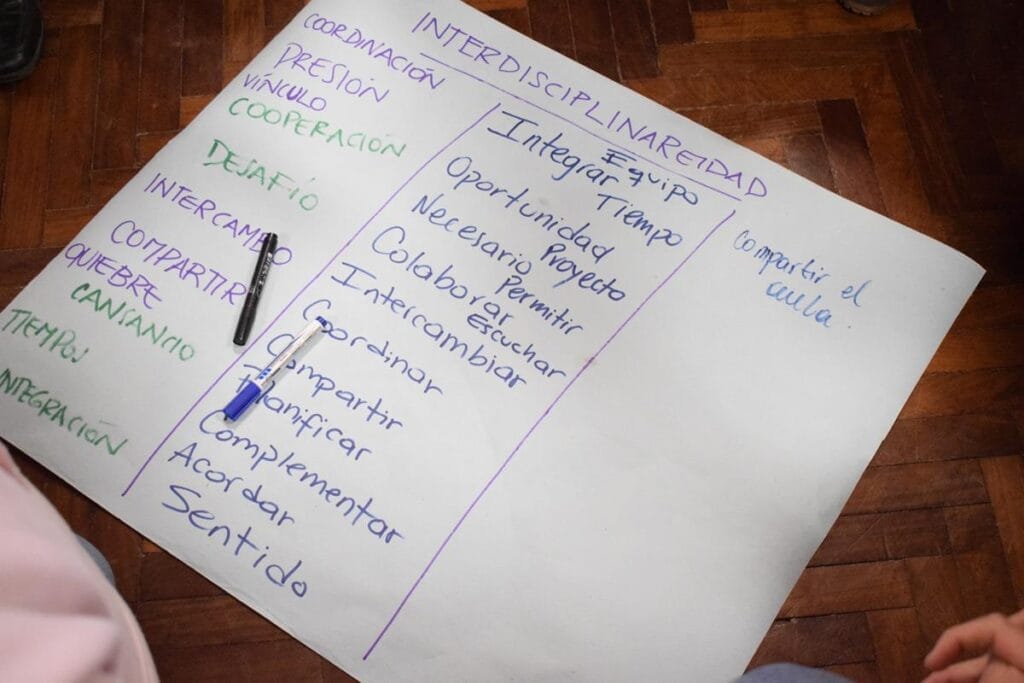 INTERDISCIPLINAREIDAD
COORDINACIÓN
PRESIÓN
VÍNCULO
COOPERACIÓN
DESAFÍO
INTERCAMBIO
COMPARTIR
QUIEBRE
CANSANCIO
TIEMPOS
INTEGRACIÓN
Equipo
Integrar Tiempo
Oportunidad
Proyecto
Necesario
Permitir
Colaborar
Escuchar
Intercambiar
Coordinar
Compartir
Planificar
Complementar
Acordar
Sentido
Compartir el
aula.